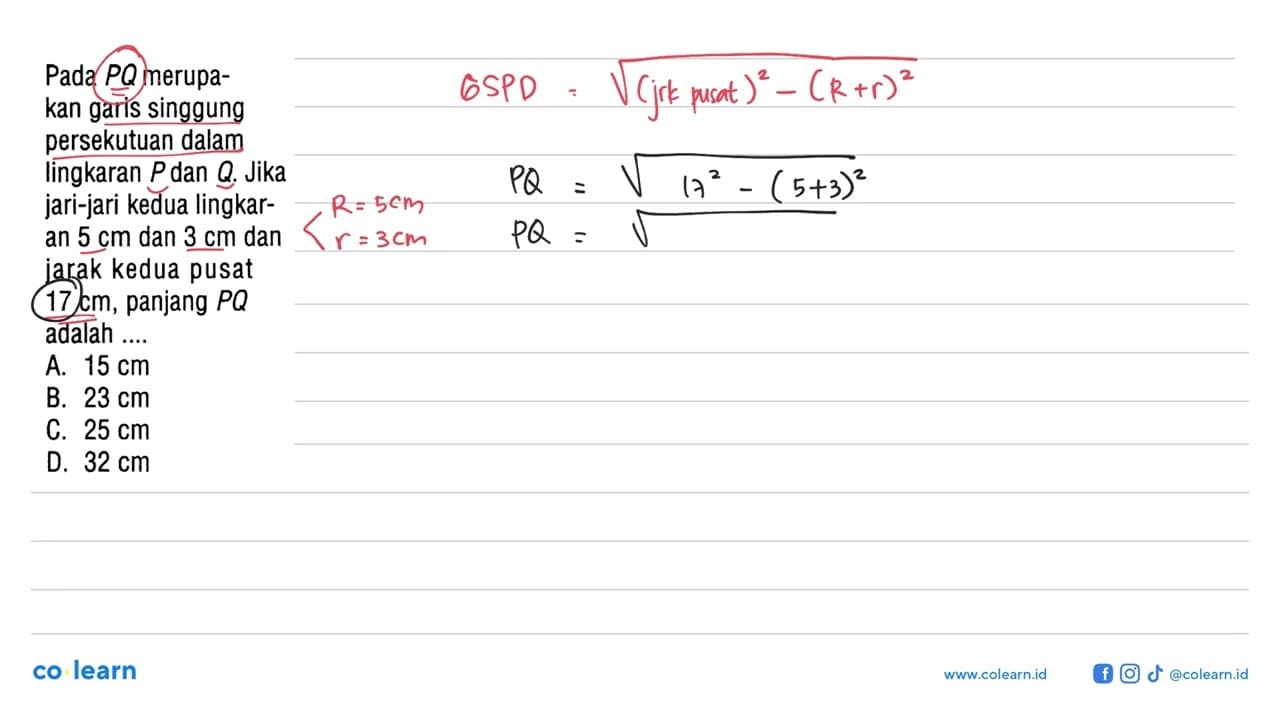 Pada PQ merupa-
kan garis singgung
persekutuan dalam
lingkaran P dan Q. Jika
jari-jari kedua lingkar-
an 5 cm dan 3 cm dan
jarak kedua pusat
17 cm, panjang PQ
adalah ....
A. 15 cm
B. 23 cm
C. 25 cm
D. 32 cm
R = 5cm
r = 3cm
GSPD = √(jrk pusat)² - (R+r)²
PQ = √17² - (5+3)²
PQ = √
co learn
www.colearn.id
@colearn.id